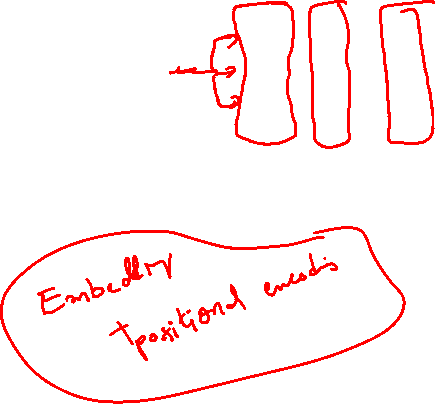 Embedding
+ positional encodis